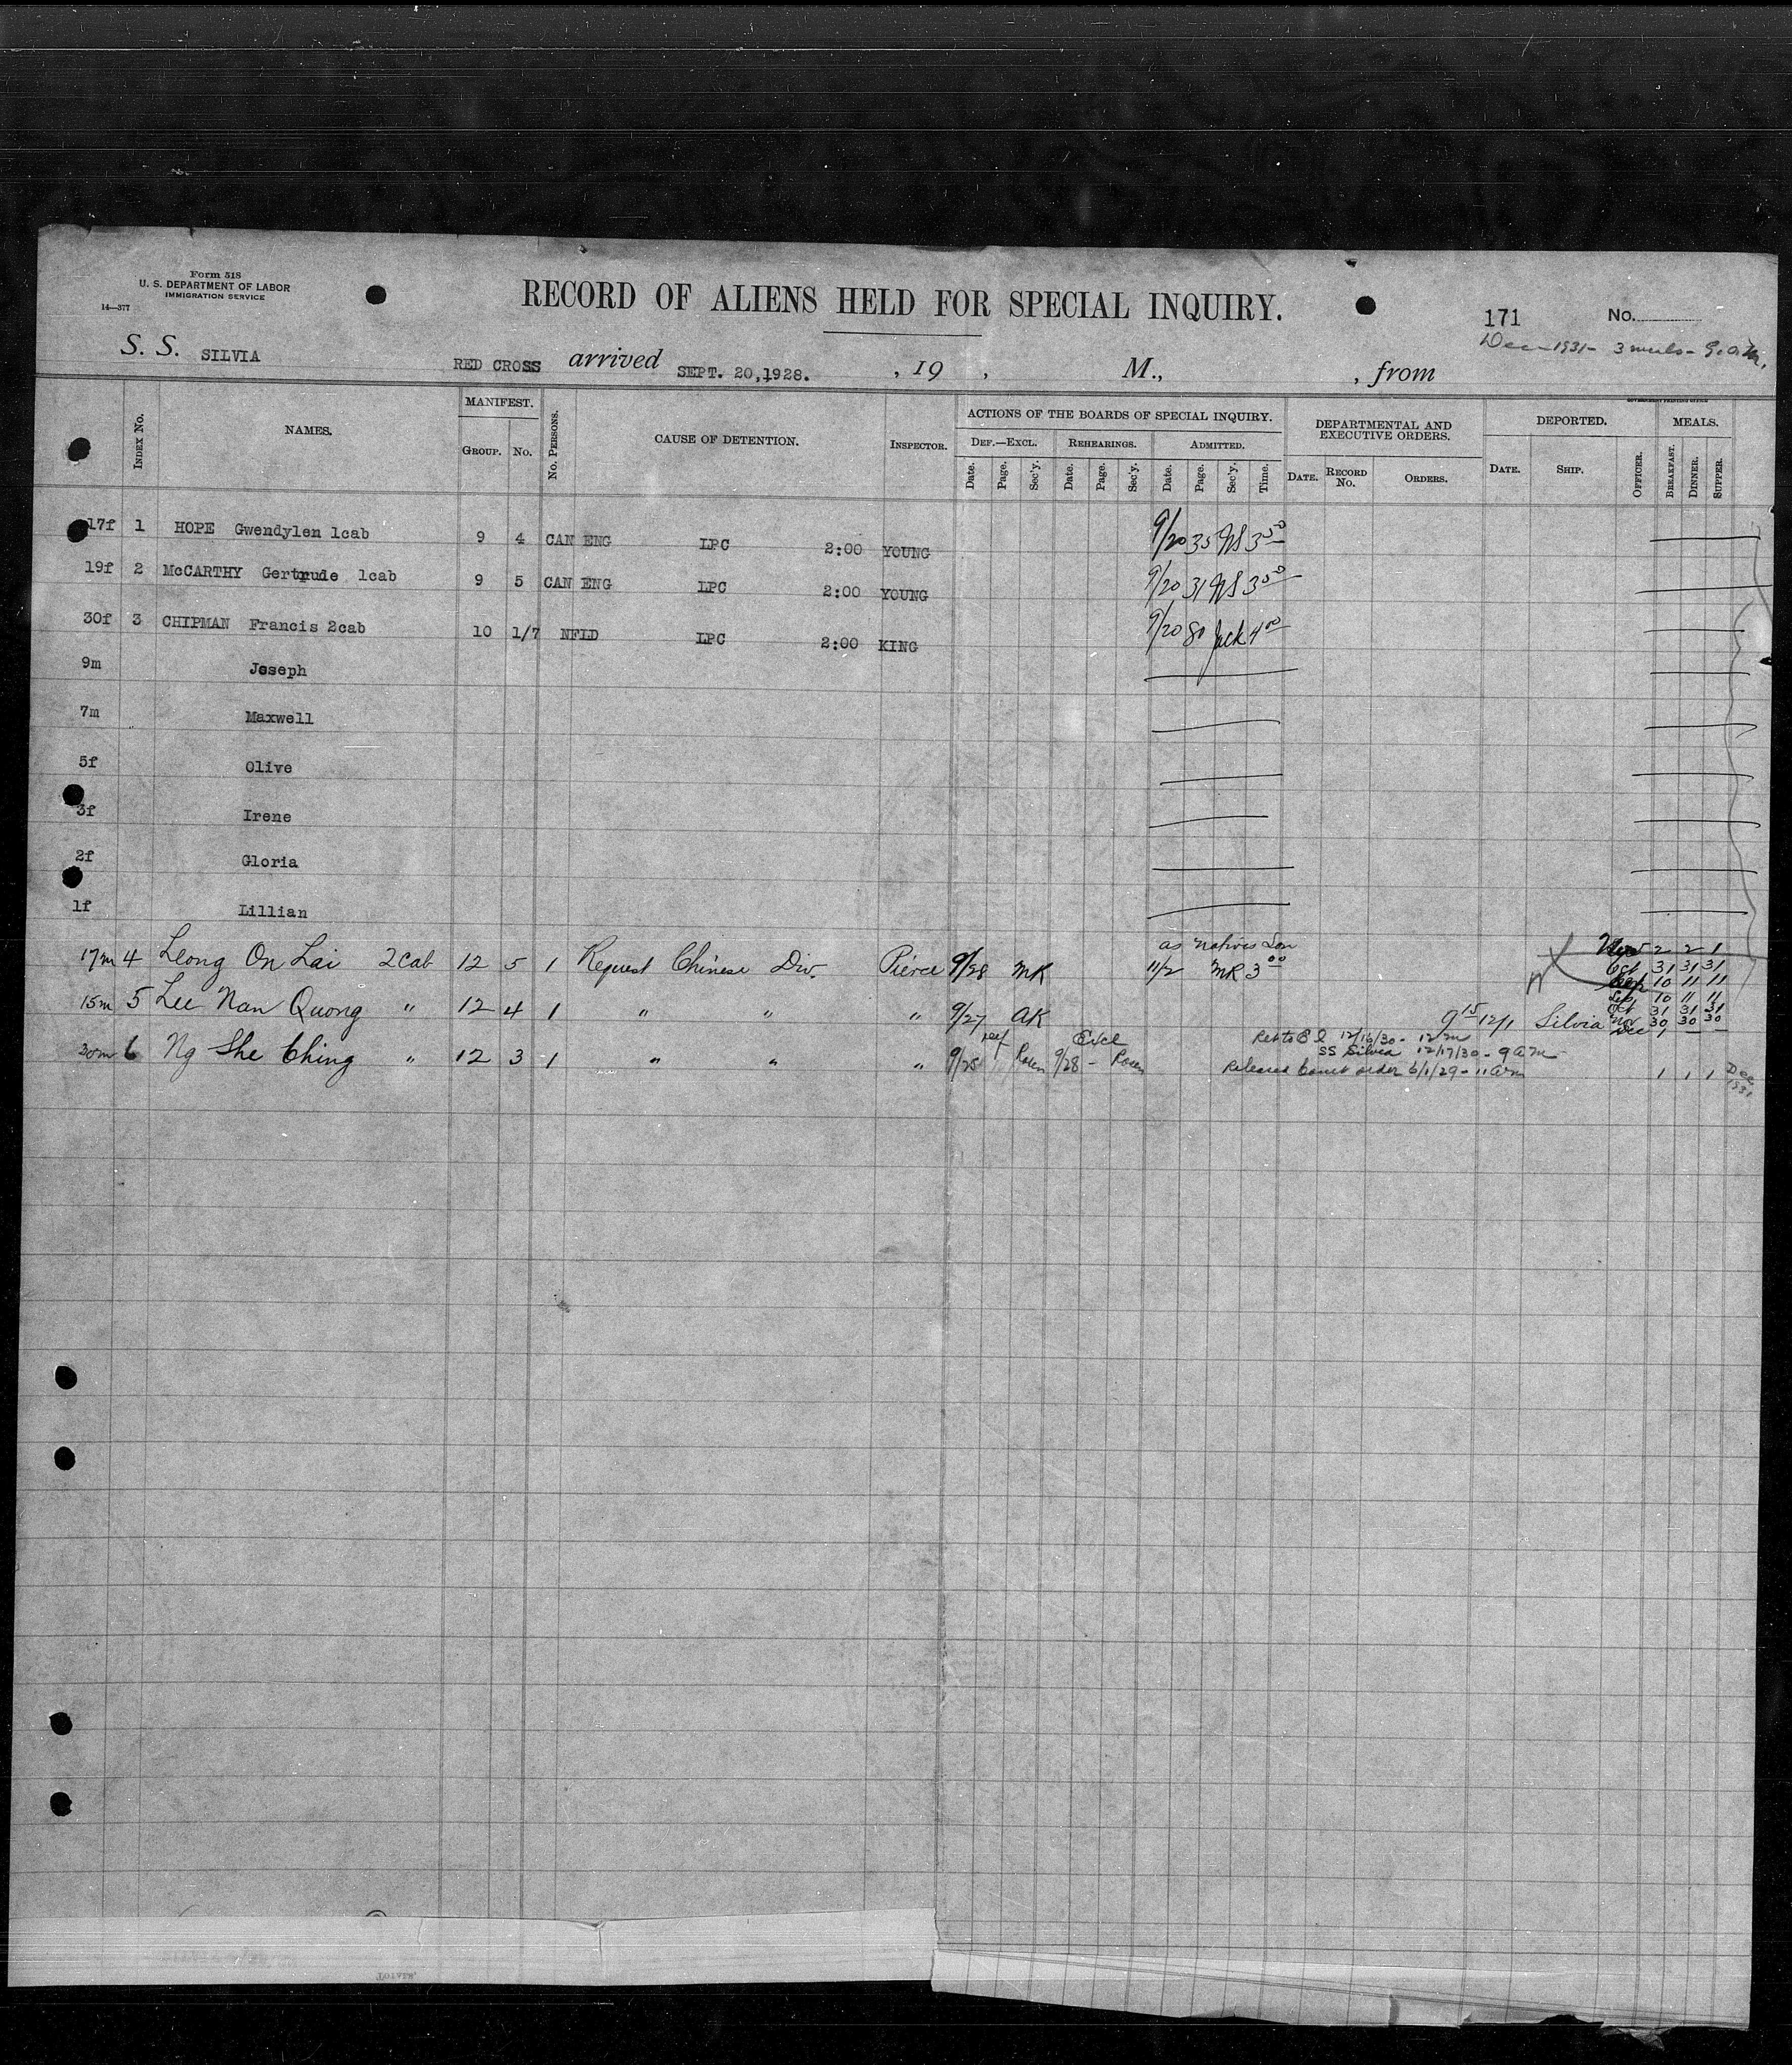 Form 518
U. S. DEPARTMENT OF LABOR
IMMIGRATION SERVICE
14—377
RECORD OF ALIENS HELD FOR SPECIAL INQUIRY.
171 No.
Dec - 1931 - 3 meals -
S. S. SILVIA RED CROSS arrived SEPT. 20,1928. , 19 , M., , from
INDEX No. NAMES. MANIFEST. GROUP. No. No. PERSONS. CAUSE OF DETENTION. INSPECTOR. ACTIONS OF THE BOARDS OF SPECIAL INQUIRY. DEF.—EXCL. Date. Page. Sec'y. REHEARINGS. Date. Page. Sec'y. ADMITTED. Date. Page. Sec'y. Time. DEPARTMENTAL AND EXECUTIVE ORDERS. DATE. RECORD No. ORDERS. DEPORTED. DATE. SHIP. OFFICER. MEALS. BREAKFAST. DINNER. SUPPER.
17f 1 HOPE Gwendylen 1cab 9 4 CAN ENG LPC 2:00 YOUNG 9/20 35 3 00
19f 2 McCARTHY Gertrude 1cab 9 5 CAN ENG LPC 2:00 YOUNG 9/20 31 3 00
30f 3 CHIPMAN Francis 2cab 10 1/7 NFLD LPC 2:00 KING 9/20 80 Jack 4 00
9m Joseph
7m Maxwell
5f Olive
3f Irene
2f Gloria
1f Lillian
17m 4 Leong On Lai 2cab 12 5 1 Request Chinese Div. Pierce 9/28 MK as natives Son 11/2 MR 3 00 Nov 2 2 1
Oct 31 31 31
Sep 10 11 11
15m 5 Lee Nan Quong " 12 4 1 " " " 9/27 AK 9 15 12/1 Silvia Sep 10 11 11
Oct 31 31 31
Nov 30 30 30
Dec 1
30m 6 Ng She Ching " 12 3 1 " " " 9/25 def Rosen 9/28 - Excl Rosen Ret to E I 12/16/30 - 12 m
SS Silvia 12/17/30 - 9 am
Released Court order 6/1/29 - 11 am 1 1 1 Dec 1931